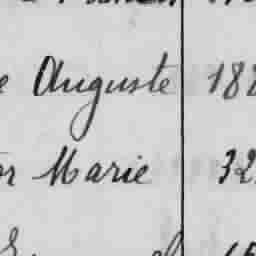 e Auguste 188
or Marie 32